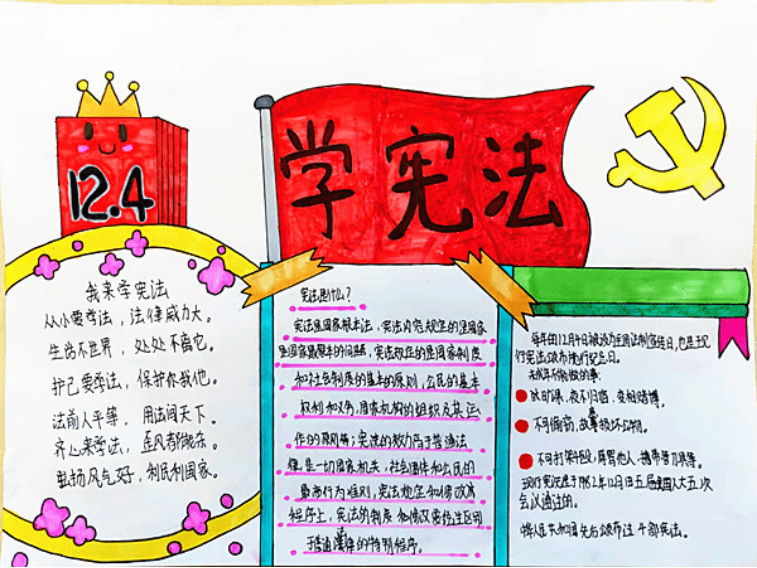 12.4
学宪法
我来学宪法
从小要学法，法律威力大。
生当不世界，处处不离它。
护己要学法，保护你我他。
法前人平等，用法闯天下。
齐心来学法，歪风都能杀。
弘扬风气好，利民利国家。
宪法是什么？
宪法是国家根本法，宪法内容规定的是国家
最根本的问题，宪法规定的是国家制度
和社会制度的基本的原则，公民的基本
权利和义务，国家机构的组织及其运
作的原则等；宪法的效力高于普通法
律，是一切国家机关，社会团体和公民的
最高行为准则，宪法地定和修改
程序上，宪法的制度和修改要经过区别
于普通法律的特别程序。
每年的12月4日被设为全国法制宣传日，也是于现
行宪法颁布施行纪念日。
未成年不能做的事：
旷课，夜不归宿，变相赌博。
不可偷窃，故意损坏公物。
不可打架斗殴，辱骂他人，携带管刀具等。
现行宪法是于1982年12月4日五届全国人大五次
会议通过的。